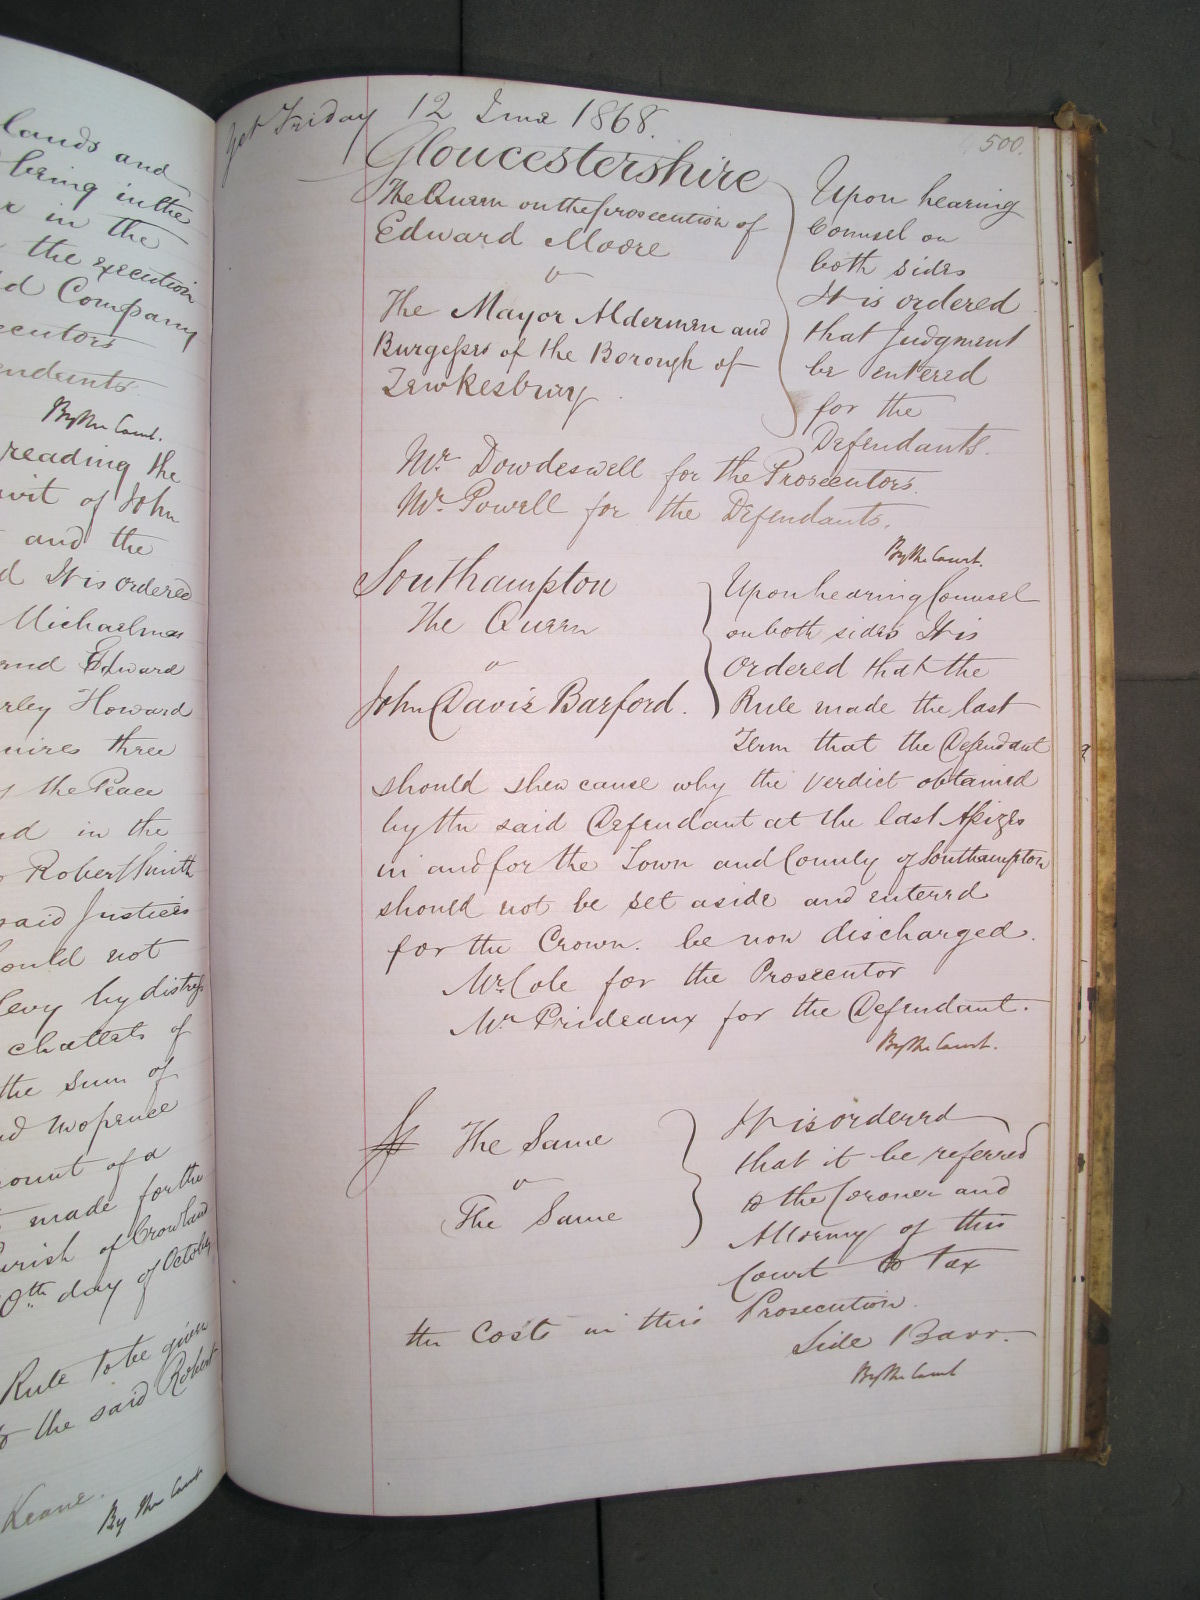 lands and
being in the
in the
the execution
d Company
ecutors
endants
By the Court.
reading the
avit of John
and the
d It is ordered
Michaelmas
and Edward
rley Howard
uires three
the Peace
nd in the
Robert Smith
said Justices
ould not
levy by distress
chattels of
the sum of
nd twopence
count of a
made for the
arish of Crowland
0th day of October
Rule to be given
to the said Robert
Keane.
By the Court
Yet Friday 12 June 1868.
500.
Gloucestershire
The Queen on the prosecution of
Edward Moore
v
The Mayor Aldermen and
Burgesses of the Borough of
Tewkesbury
Upon hearing
Counsel on
both sides
It is ordered
that Judgment
be entered
for the
Defendants.
Mr. Dowdeswell for the Prosecutors.
Mr. Powell for the Defendants.
By the Court.
Southampton
The Queen
v
John Davis Barford.
Upon hearing Counsel
on both sides It is
ordered that the
Rule made the last
Term that the Defendant
should shew cause why the verdict obtained
by the said Defendant at the last Assizes
in and for the Town and County of Southampton
should not be set aside and entered
for the Crown. be now discharged.
Mr. Cole for the Prosecutor
Mr. Prideaux for the Defendant.
By the Court.
The Same
v
The Same
It is ordered
that it be referred
to the Coroner and
Attorney of this
Court to tax
the Costs in this Prosecution.
Side Barr.
By the Court